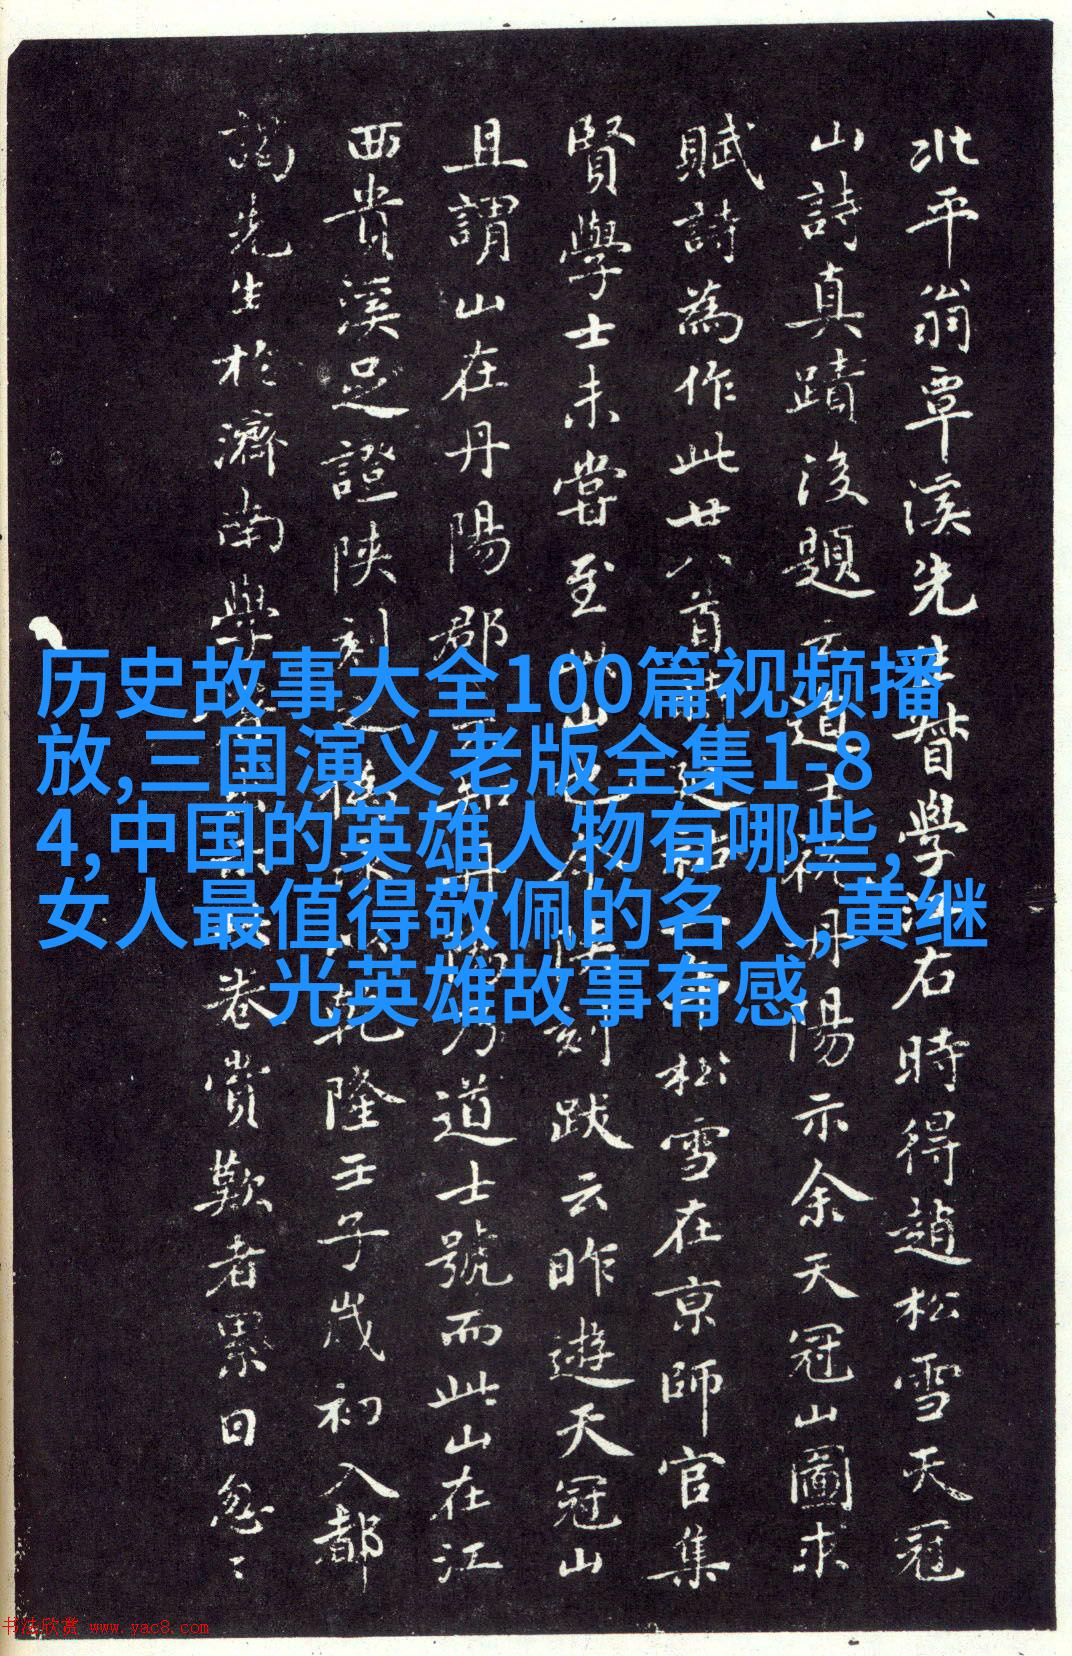 北平翁覃溪先生督學江右時得趙松雪天冠
山詩真蹟後題云道士祝丹陽示余天冠山圖求
賦詩為作此廿八首 延祐 松雪在京師官集
賢學士未嘗至 山也 陝刻跋云昨遊天冠山
且謂山在丹陽郡 不知丹陽乃道士號而此山在江
西貴溪足證陝刻之 乾隆壬子歲初入都
謁先生於濟南學 卷賞歎者累日忽〻
历史故事大全100篇视频播
放,三国演义老版全集1-8
4,中国的英雄人物有哪些,
女人最值得敬佩的名人, 黄继
光英雄故事有感
书法欣赏 www.yac8.com